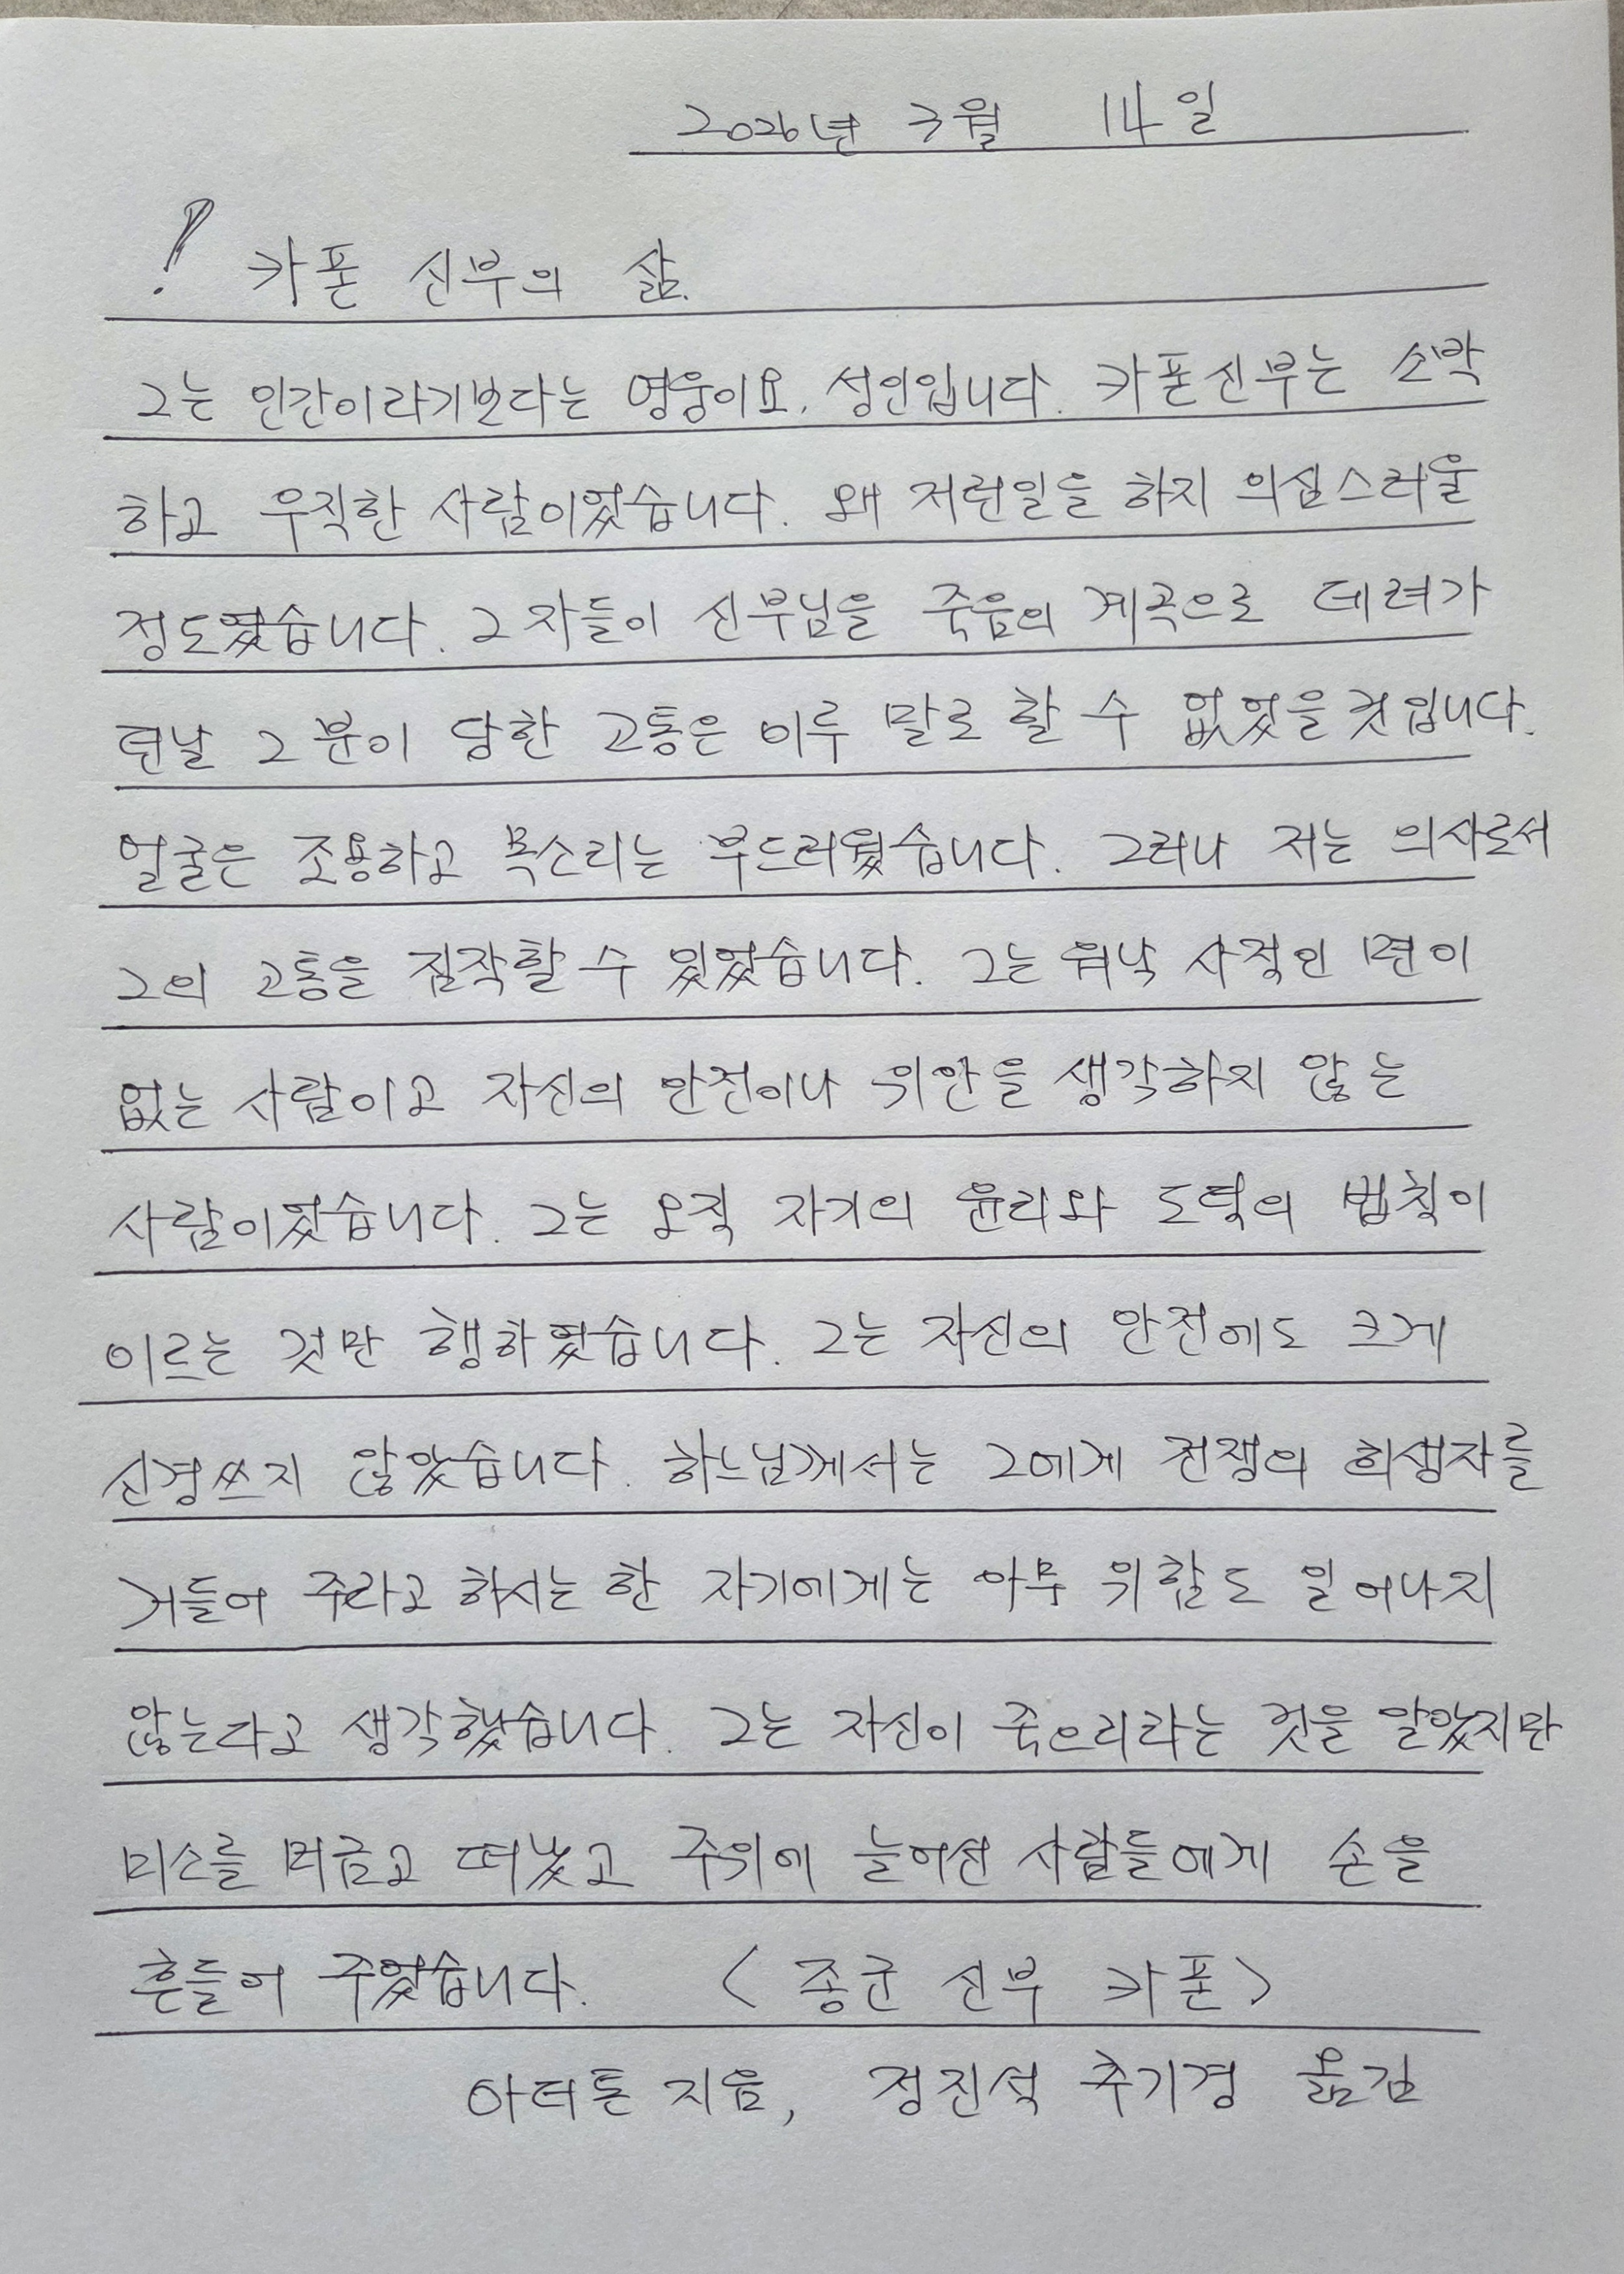 2026년 3월 14일
! 카폰 신부의 삶.
그는 인간이라기보다는 영웅이요, 성인입니다. 카폰신부는 소박
하고 우직한 사람이었습니다. 왜 저런일을 하지 의심스러울
정도였습니다. 그 자들이 신부님을 죽음의 계곡으로 데려가
던날 그 분이 당한 고통은 이루 말로 할 수 없었을것입니다.
얼굴은 조용하고 목소리는 부드러웠습니다. 그러나 저는 의사로서
그의 고통을 짐작할 수 있었습니다. 그는 워낙 사적인 면이
없는 사람이고 자신의 안전이나 위안을 생각하지 않는
사람이었습니다. 그는 오직 자기의 윤리와 도덕의 법칙이
이르는 것만 행하였습니다. 그는 자신의 안전에도 크게
신경쓰지 않았습니다. 하느님께서는 그에게 전쟁의 희생자를
거들어 주라고 하시는 한 자기에게는 아무 위험도 일어나지
않는다고 생각했습니다. 그는 자신이 죽으리라는 것을 알았지만
미소를 머금고 떠났고 주위에 늘어선 사람들에게 손을
흔들어 주었습니다. < 종군 신부 카폰 >
아더톤 지음, 정진석 추기경 옮김